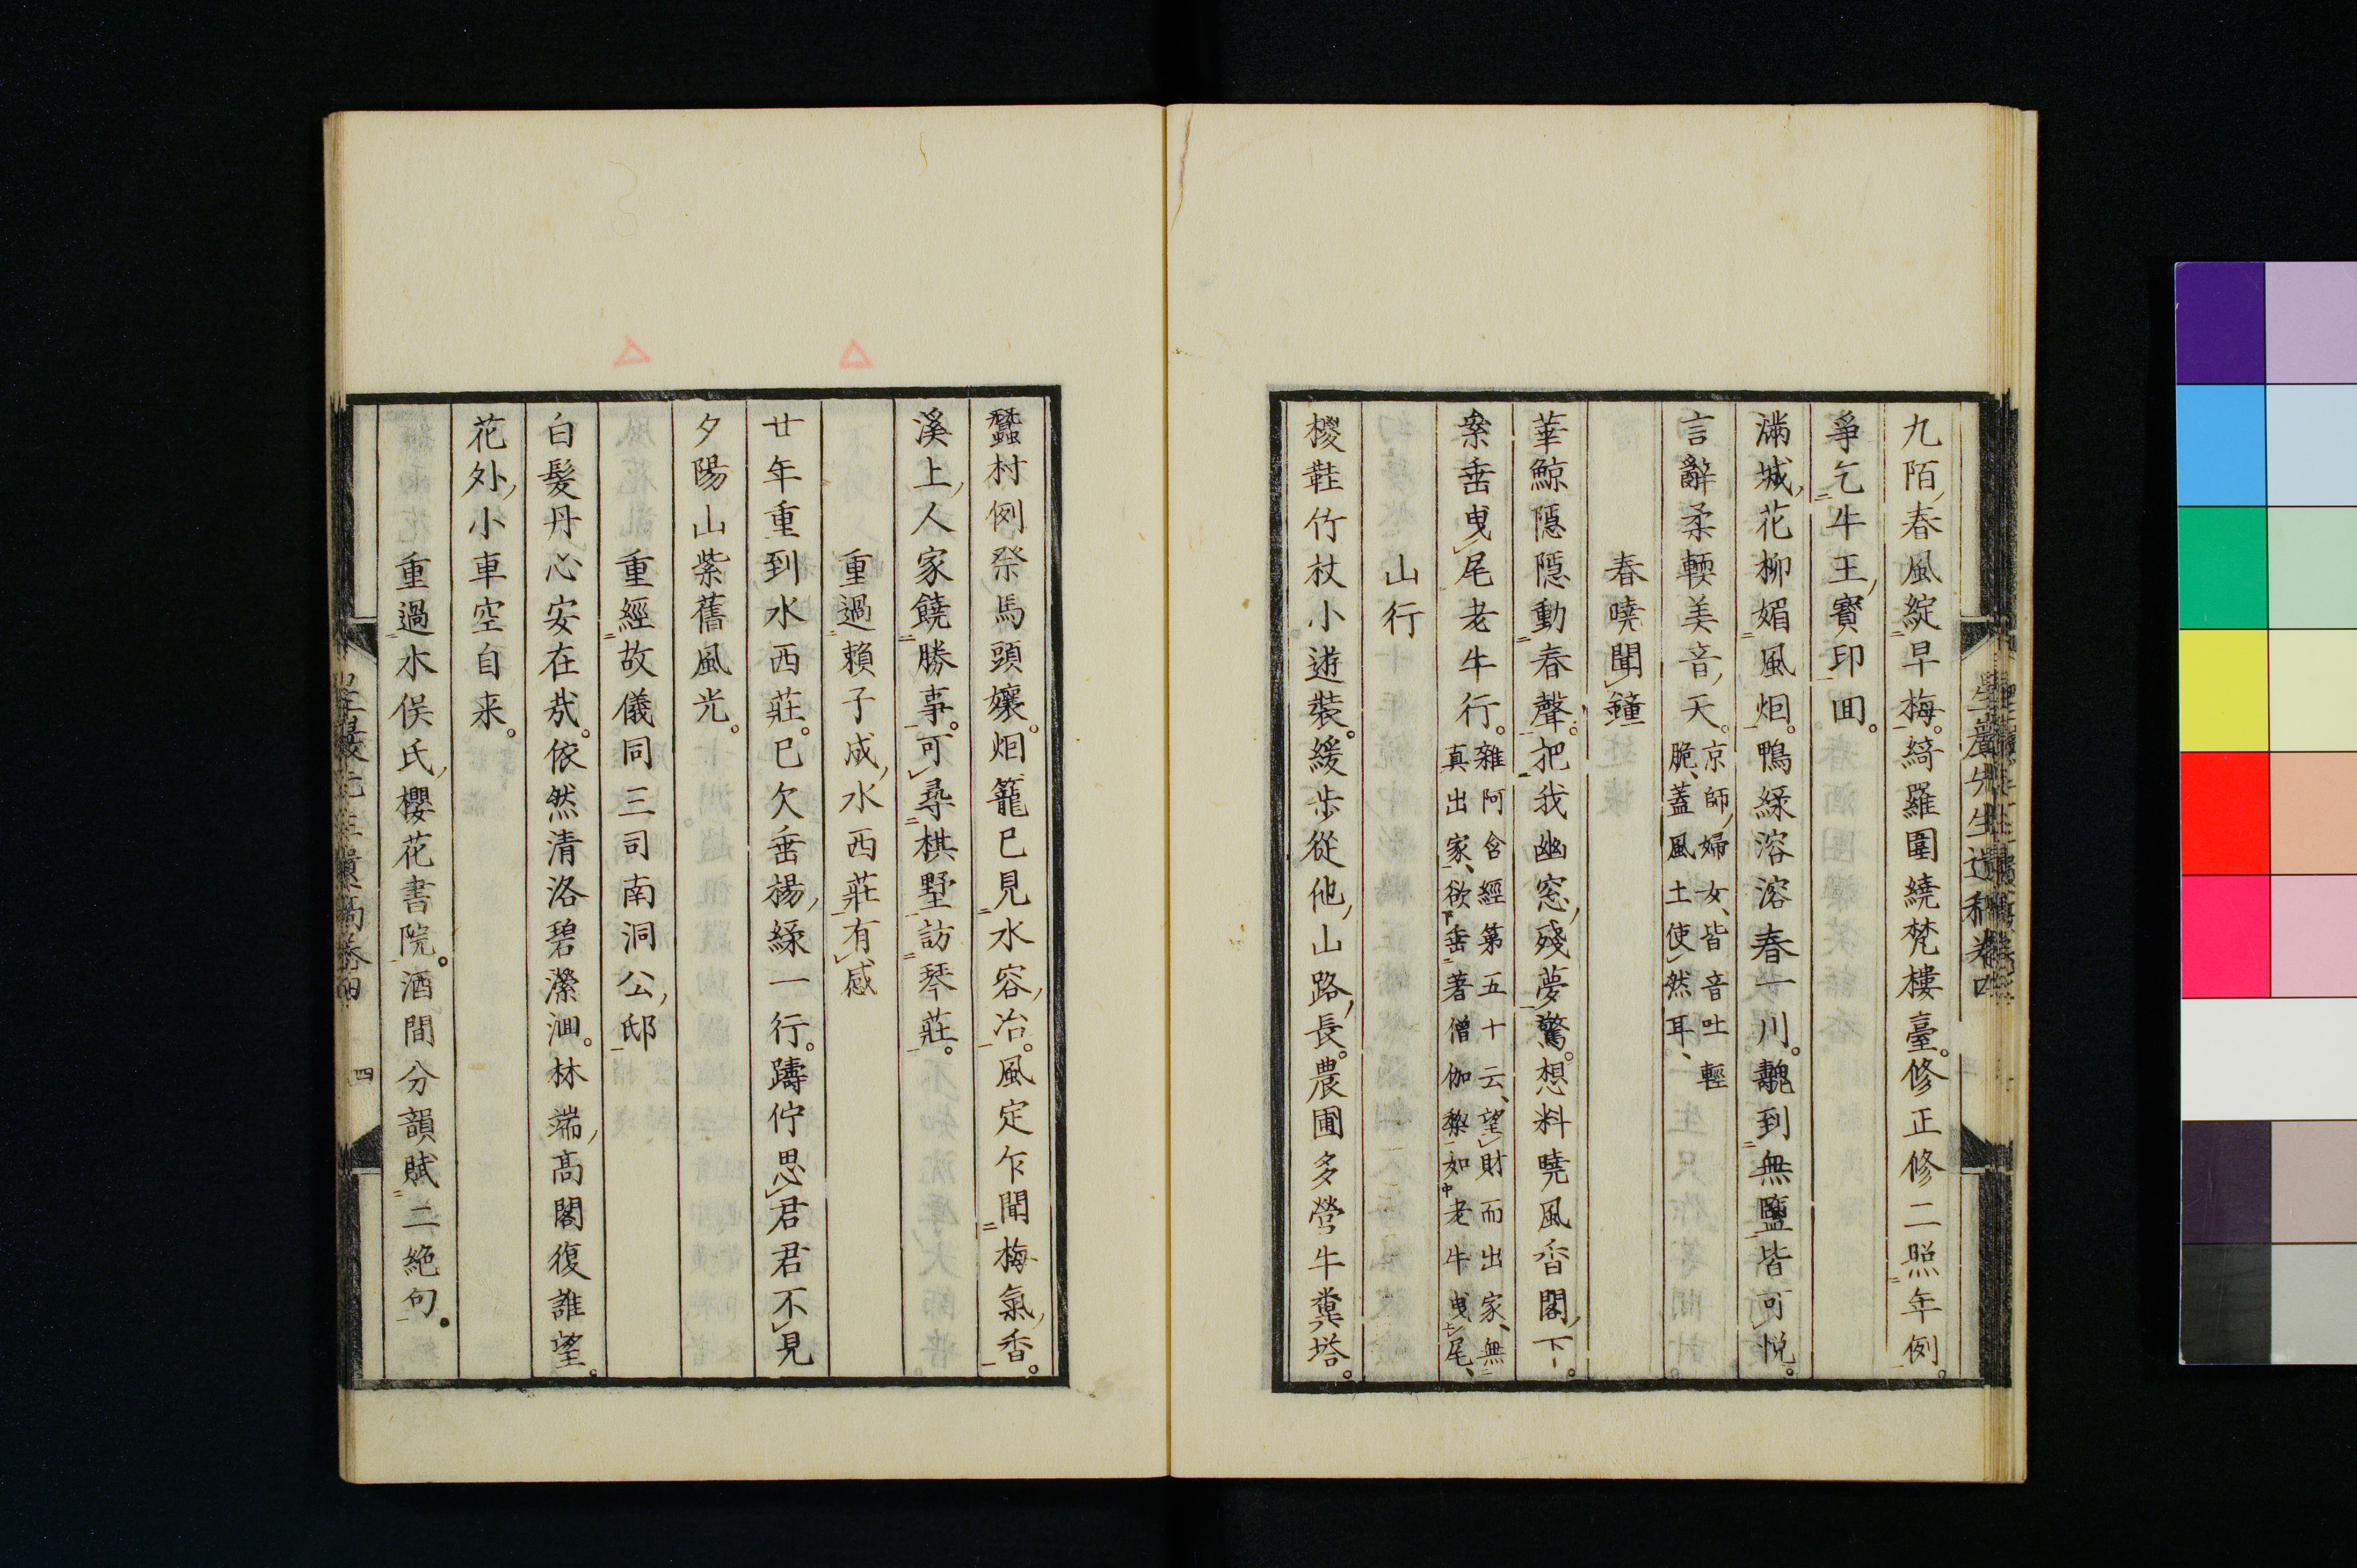 九陌春風綻早梅。綺羅圍繞梵樓臺。修正修二照年例。
爭乞牛王寳印囬。
滿城花柳媚風烟。鴨綠溶溶春一川。䰀到無鹽皆可悅。
言辭柔輭美音天。京師婦女、皆音吐輕
脆、蓋風土使然耳、
春曉聞鐘
華鯨隱隱動春聲。把我幽窓殘夢驚。想料曉風香閣下。
桼垂曳尾老牛行。雜阿含經第五十云、望財而出家、無
真出家、欲垂著僧伽桼如老牛曳尾、
山行
椶鞋竹杖小遊裝。緩歩從他山路長。農圃多營牛糞塔。
蠶村例祭馬頭孃。烟籠已見水容冶。風定乍聞梅氣香。
溪上人家饒勝事。可尋棋墅訪琴莊。
重過賴子成水西莊有感
廿年重到水西莊。已欠垂楊綠一行。躊佇思君君不見
夕陽山紫舊風光。
重經故儀同三司南洞公邸
白髮丹心安在哉。依然清洛碧瀠洄。林端高閣復誰望。
花外小車空自来。
重過水俣氏櫻花書院。酒間分韻賦二絶句。
四